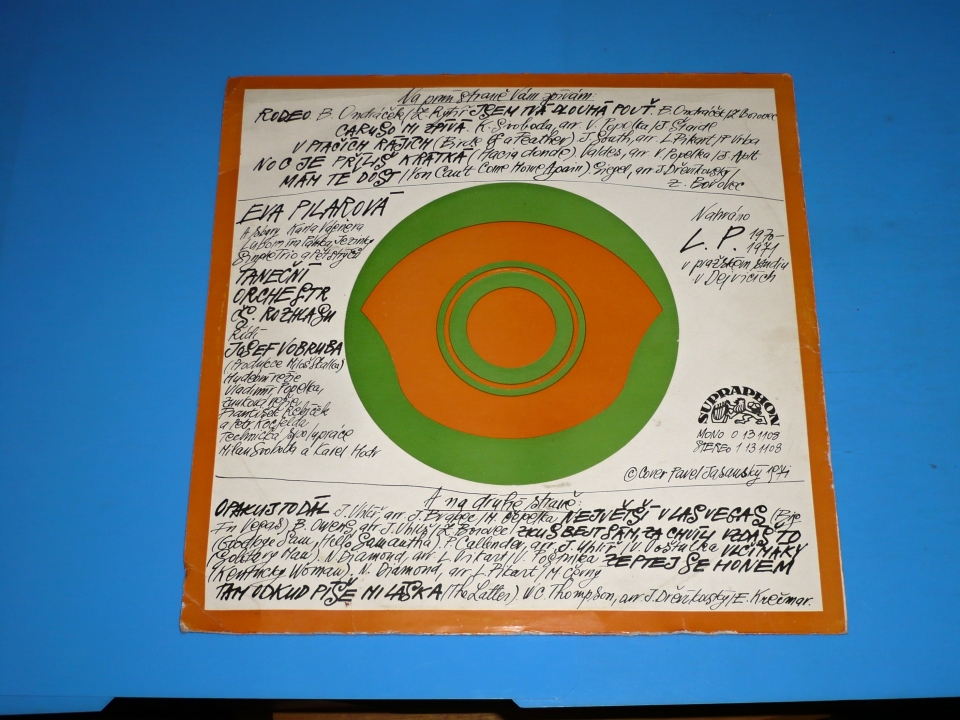 Na první straně Vám zpívám:
RODEO B. Ondráček/Z. Rytíř JSEM TVÁ DLOUHÁ POUŤ. B. Ondráček/Z. Borovec
CARUSO MI ZPÍVÁ. K. Svoboda, arr. V. Popelka/J. Štaidl
V PTAČÍCH RÁJÍCH (Birds Of a Feather) J. South, arr. L. Pikart/P. Vrba
NOC JE PŘÍLIŠ KRÁTKÁ (Hacia donde). Valdes, arr. V. Popelka/J. Aplt
MÁM TĚ DOST (You Can't Come Home Again) Siegel, arr. J. Dřevikovský/
Z. Borovec
EVA PILAROVÁ
a sbory Karla Vágnera
Lubomíra Pánka, Jezinky
TANEČNÍ
ORCHESTR
Č. ROZHLASU
řídí
JOSEF VOBRUBA
(Produkce Miloš Skalka)
Hudební režie
Vladimír Popelka,
zvuková režie
František Řebíček
a Petr Kocfelda
Technická spolupráce
Milan Svoboda a Karel Hodr
Nahráno
L. P. 1970-
1971
v pražském studiu
v Dejvicích
SUPRAPHON
MONO 0 13 1108
STEREO 1 13 1108
© Cover Pavel Jasanský 1971
A na druhé straně:
OPAKUJ TO DÁL J. Uhlíř, arr. J. Brabec/M. NEJVĚTŠÍ V LAS VEGAS (Big
In Vegas) B. Owens, arr. J. Uhlíř/Z. Borovec ZKUS BEJT SÁM, ZA CHVÍLI VZDÁŠ TO
(Goodbye Sam, Hello Samantha) P. Callender, arr. J. Uhlíř/V. Poštulka VLČÍ MÁKY
(Solitary Man) N. Diamond, arr. L. Pikart/V. Poštulka ZEPTEJ SE HONEM
(Kentucky Woman), N. Diamond, arr. L. Pikart/M. Černý
TAM ODKUD PÍŠE MI LÁSKA (The Letter) W C Thompson, arr. J. Dřevikovský/E. Krečmar.